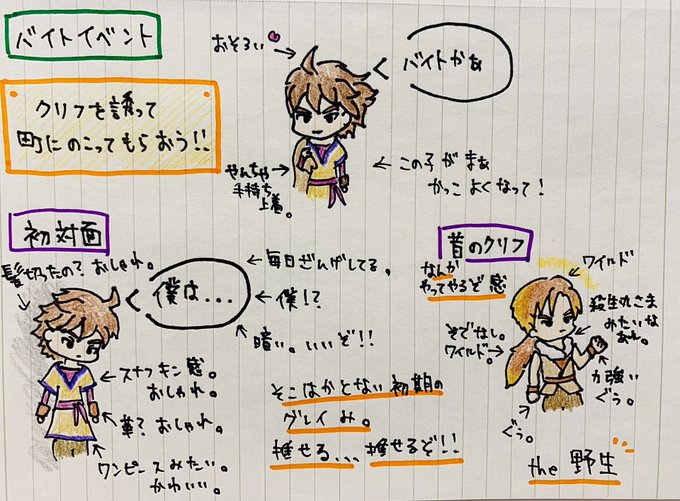 バイトイベント
おそろい
バイトかぁ
クリフを誘って
町にのこってもらおう!!
やんちゃ
手持ち
上着。
この子がまぁ
かっこよくなって!
初対面
髪切ったの?おしゃれ。
僕は...
毎日ざんげしてる。
僕!?
暗い。いいぞ!!
スナフキン感。
おしゃれ。
革?おしゃれ。
ワンピースみたい。
かわいい。
そこはかとない初期の
グレイみ。
推せる...推せるぞ!!
昔のクリフ
なんか
やってやるぞ感
ワイルド
殺生丸さま
みたいな
あれ。
そでなし。
ワイルド。
力強い
ぐう。
ぐう。
the 野生